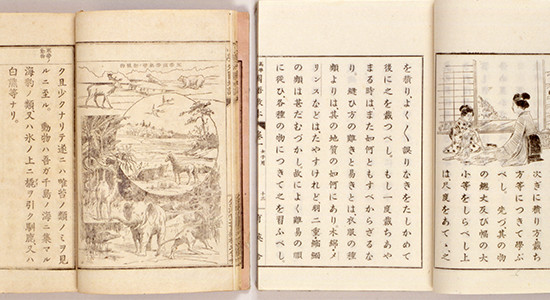 次ぎに積り方裁ち
方等につきて學ぶ
べし。先づ其の物
の總丈及び幅の大
小等をしらべし上
は、尺度をあてゝ之
を積り、よく〳〵誤りなきをたしかめて
後に之を裁つべし。もし一度裁ちあや
まる時はまた如何ともすべからざるな
り。縫ひ方の難きと易きとは衣服の種
類よりは其の地質の如何にあり。木綿、メ
リンスなどはたやすけれど、羽二重、縮緬
の類は甚だむづかし。故によく難易の順
に從ひ、各種の物につきて之を習ふべし。
國語教本 卷一
育英舍
ク且少クナリテ遂ニハ唯苔ノ類ノミヲ見
ルニ至ル。動物ハ吾ガ千島ノ海ニ集マル
海豹ノ類又ハ氷ノ上ニ橇ヲ引ク馴鹿又ハ
白熊等ナリ。